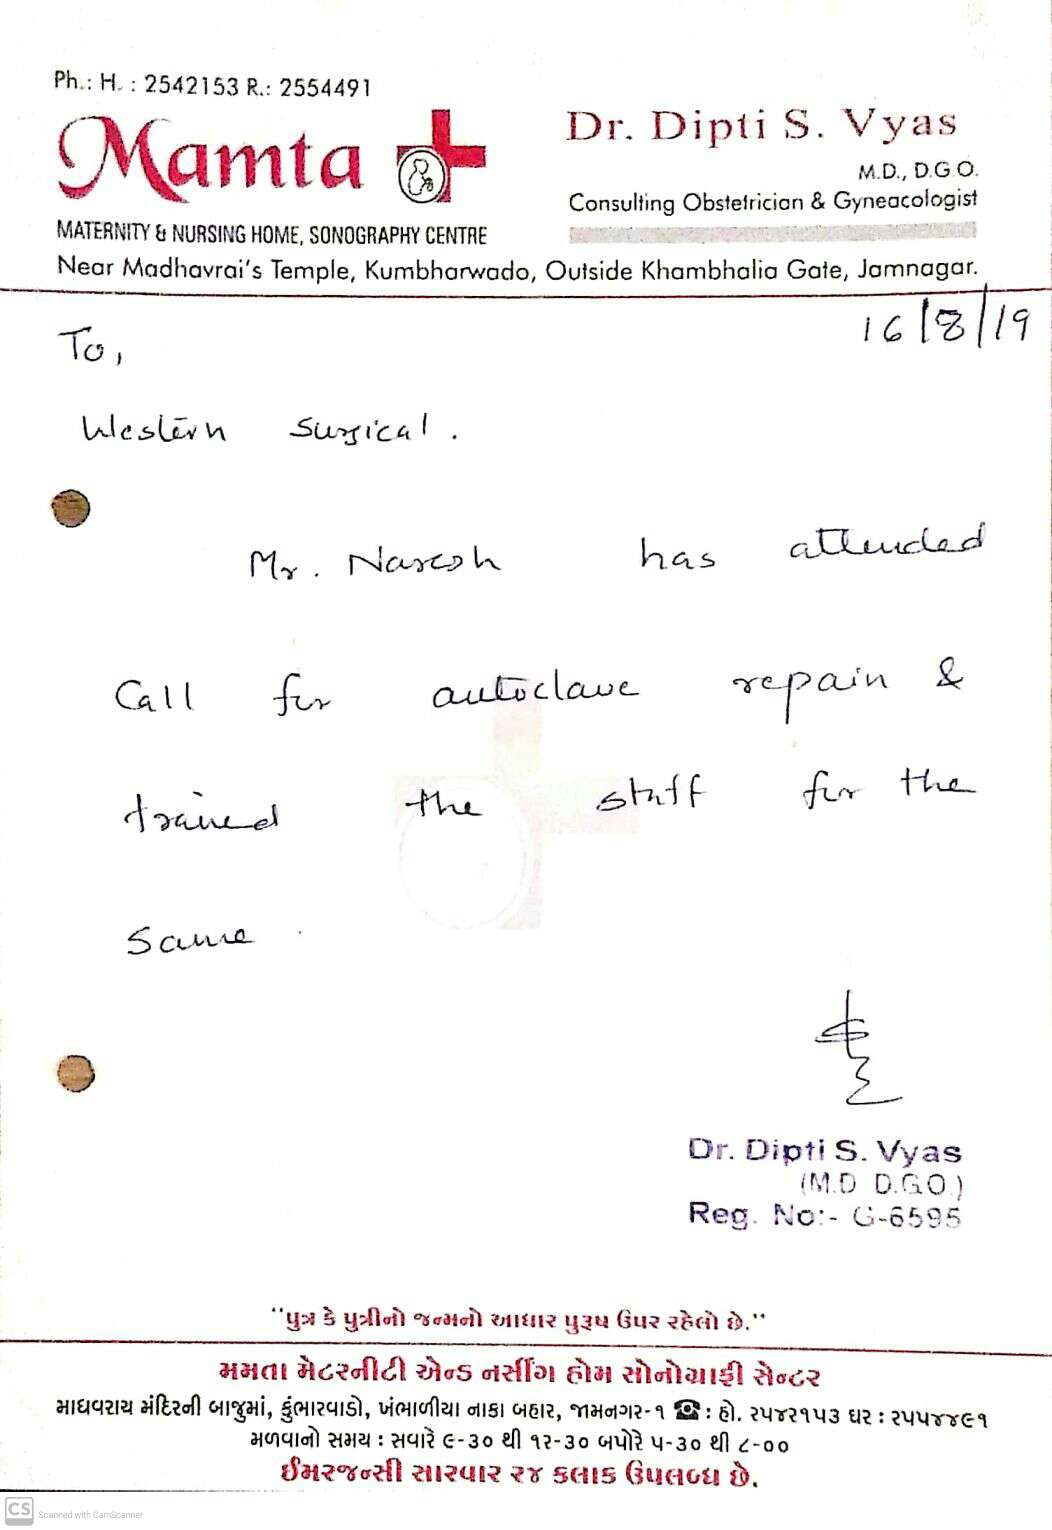 Ph.: H. : 2542153 R.: 2554491
Mamta
Dr. Dipti S. Vyas
M.D., D.G.O.
Consulting Obstetrician & Gyneacologist
MATERNITY & NURSING HOME, SONOGRAPHY CENTRE
Near Madhavrai's Temple, Kumbharwado, Outside Khambhalia Gate, Jamnagar.
16/8/19
To,
Western Surgical.
Mr. Naresh has attended
Call for autoclave repain &
trained the staff for the
same.
Dr. Dipti S. Vyas
(M.D D.G.O.)
Reg. No:- G-6595
"પુત્ર કે પુત્રીનો જન્મનો આધાર પુરૂષ ઉપર રહેલો છે."
મમતા મેટરનીટી એન્ડ નર્સીંગ હોમ સોનોગ્રાફી સેન્ટર
માધવરાય મંદિરની બાજુમાં, કુંભારવાડો, ખંભાળીયા નાકા બહાર, જામનગર-૧ ☎ : હો. ૨૫૪૨૧૫૩ ઘર : ૨૫૫૪૪૯૧
મળવાનો સમય : સવારે ૯-૩૦ થી ૧૨-૩૦ બપોરે ૫-૩૦ થી ૮-૦૦
ઈમરજન્સી સારવાર ૨૪ કલાક ઉપલબ્ધ છે.
CS Scanned with CamScanner